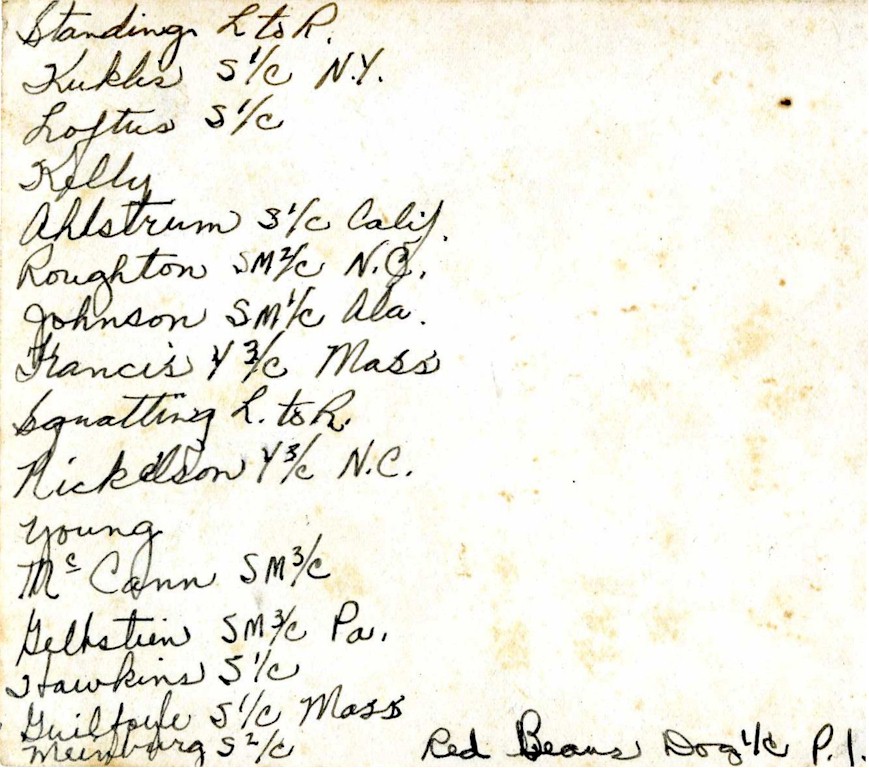 Standing L to R.
Kuklis S 1/c N.Y.
Loftus S 1/c
Kelly
Ahlstrum S 1/c Calif.
Roughton SM 2/c N.C.
Johnson SM 1/c Ala.
Francis Y 3/c Mass
Squatting L. to R.
Nickelson Y 3/c N.C.
Young
McCann SM 3/c
SM 3/c Pa.
Hawkins S 1/c
Guilfoyle S 1/c Mass
S 2/c
Red Beans Dog 1/c P.I.